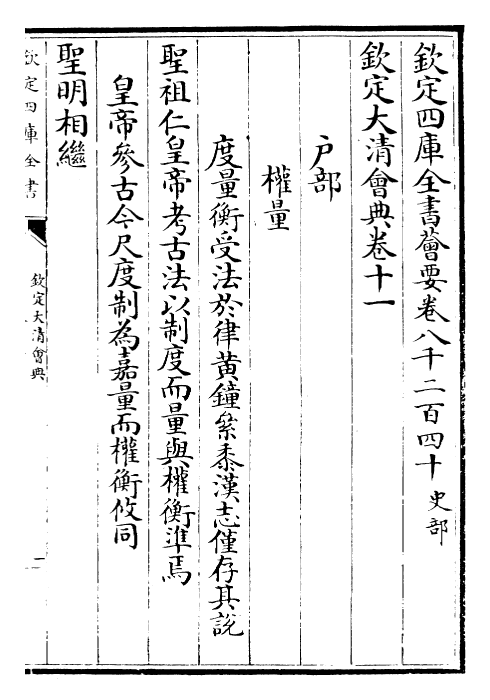 欽定四庫全書薈要卷八千二百四十 史部
欽定大清會典卷十一
戶部
權量
度量衡受法於律黄鐘絫黍漢志僅存其說
聖祖仁皇帝考古法以制度而量與權衡準焉
皇帝參古今尺度制為嘉量而權衡攸同
聖明相繼
欽定四庫全書
欽定大清會典
一